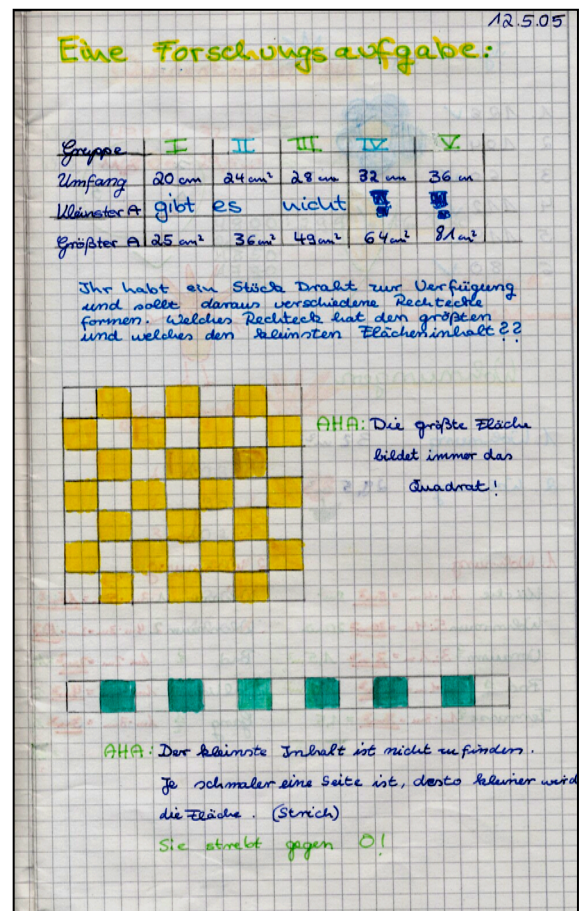 12.5.05
Eine Forschungsaufgabe:
Gruppe I II III IV V
Umfang 20 cm 24 cm² 28 cm 32 cm 36 m
Kleinster A gibt es nicht
Größter A 25 cm² 36 cm² 49 cm² 64 cm² 81 cm²
Ihr habt ein Stück Draht zur Verfügung
und sollt daraus verschiedene Rechtecke
formen. Welches Rechteck hat den größten
und welches den kleinsten Flächeninhalt??
AHA: Die größte Fläche
bildet immer das
Quadrat!
AHA: Der kleinste Inhalt ist nicht zu finden.
Je schmaler eine Seite ist, desto kleiner wird
die Fläche. (Strich)
Sie strebt gegen 0!